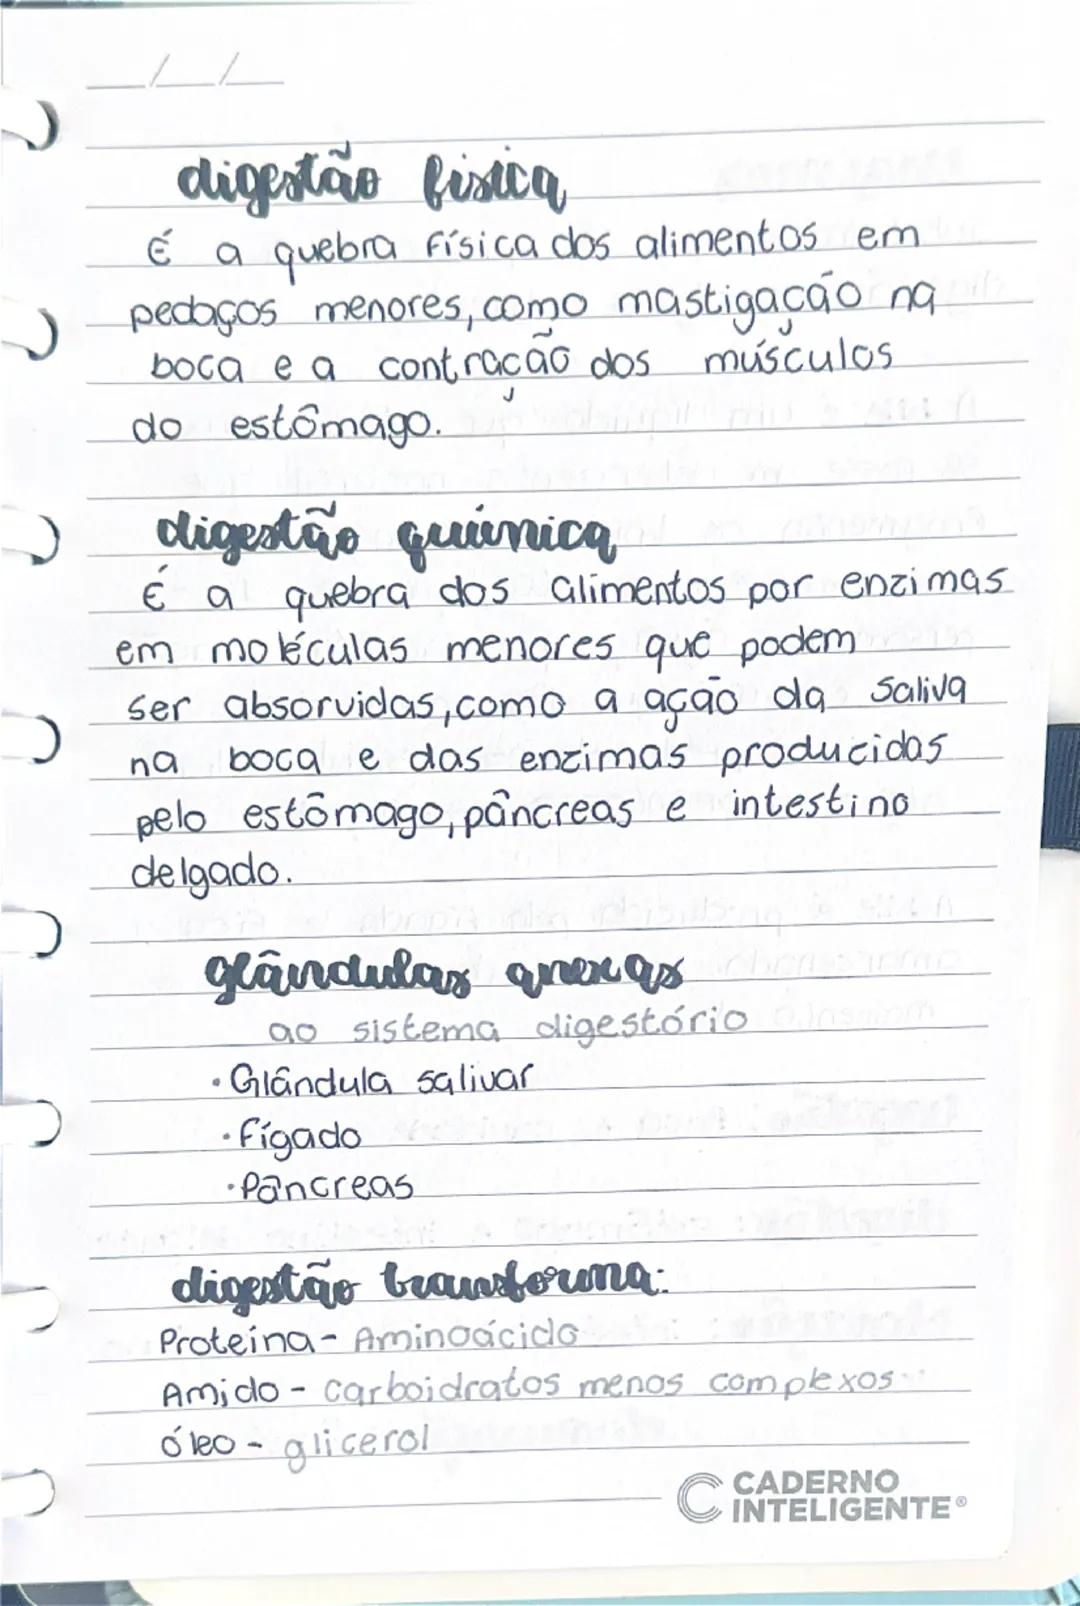 __/__/__
digestão física
É a quebra física dos alimentos em
pedaços menores, como mastigação na
boca e a contração dos músculos
do estômago.
digestão química
É a quebra dos alimentos por enzimas
em moléculas menores que podem
ser absorvidas, como a ação da saliva
na boca e das enzimas producidas
pelo estômago, pâncreas e intestino
delgado.
glândulas anexas
ao sistema digestório
· Glândula salivar
· Fígado
· Pâncreas
digestão transforma:
Proteína - Aminoácido
Amido - carboidratos menos complexos
óleo - glicerol
CADERNO
INTELIGENTE®